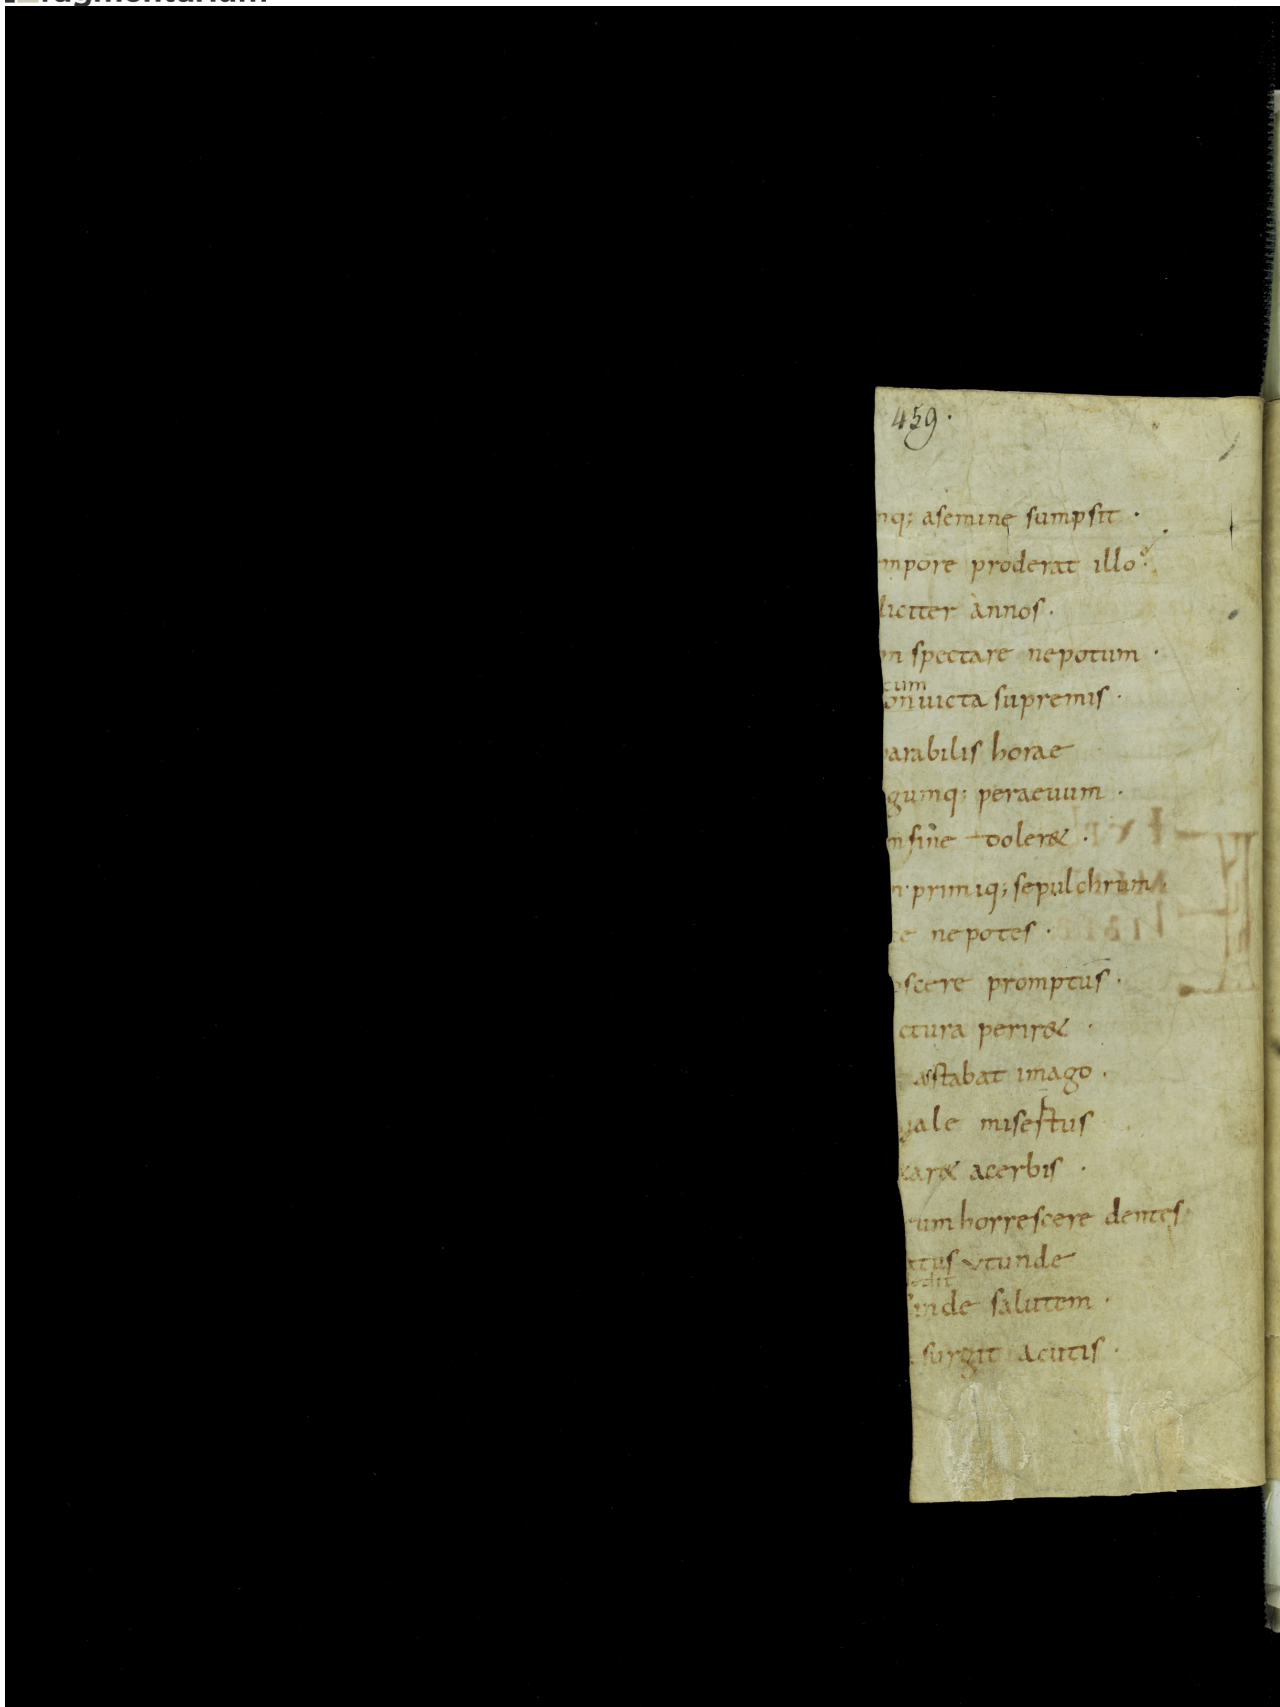 459.
nq; asemine sumpsit ·
mpore proderat illo
liciter annos ·
n spectare nepotum ·
cum
onuicta supremis ·
arabilis horae
gumq; peraeuum ·
n sine doler& ·
n primiq; sepulchrum
e nepotes ·
oscere promptus ·
ctura perir& ·
astabat imago ·
ale misestus
ar& acerbis ·
um horrescere dentes
tus vtunde
odit
inde salutem ·
surgit acutis ·